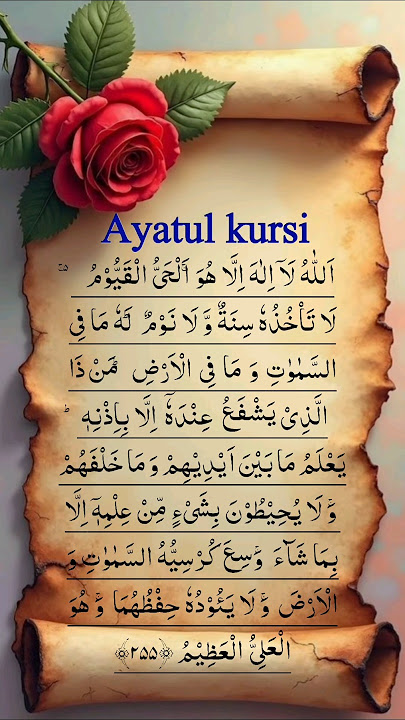 Ayatul kursi
اَللّٰهُ لَاۤ اِلٰهَ اِلَّا هُوَ ۚ اَلْحَیُّ الْقَیُّوْمُ ۚ۬
لَا تَاْخُذُهٗ سِنَةٌ وَّ لَا نَوْمٌ ؕ لَهٗ مَا فِی
السَّمٰوٰتِ وَ مَا فِی الْاَرْضِ ؕ مَنْ ذَا
الَّذِیْ یَشْفَعُ عِنْدَهٗۤ اِلَّا بِاِذْنِهٖ ؕ
یَعْلَمُ مَا بَیْنَ اَیْدِیْهِمْ وَ مَا خَلْفَهُمْ
وَ لَا یُحِیْطُوْنَ بِشَیْءٍ مِّنْ عِلْمِهٖۤ اِلَّا
بِمَا شَآءَ ۚ وَسِعَ كُرْسِیُّهُ السَّمٰوٰتِ وَ
الْاَرْضَ ۚ وَ لَا یَـُٔوْدُهٗ حِفْظُهُمَا ۚ وَ هُوَ
الْعَلِیُّ الْعَظِیْمُ ﴿۲۵۵﴾